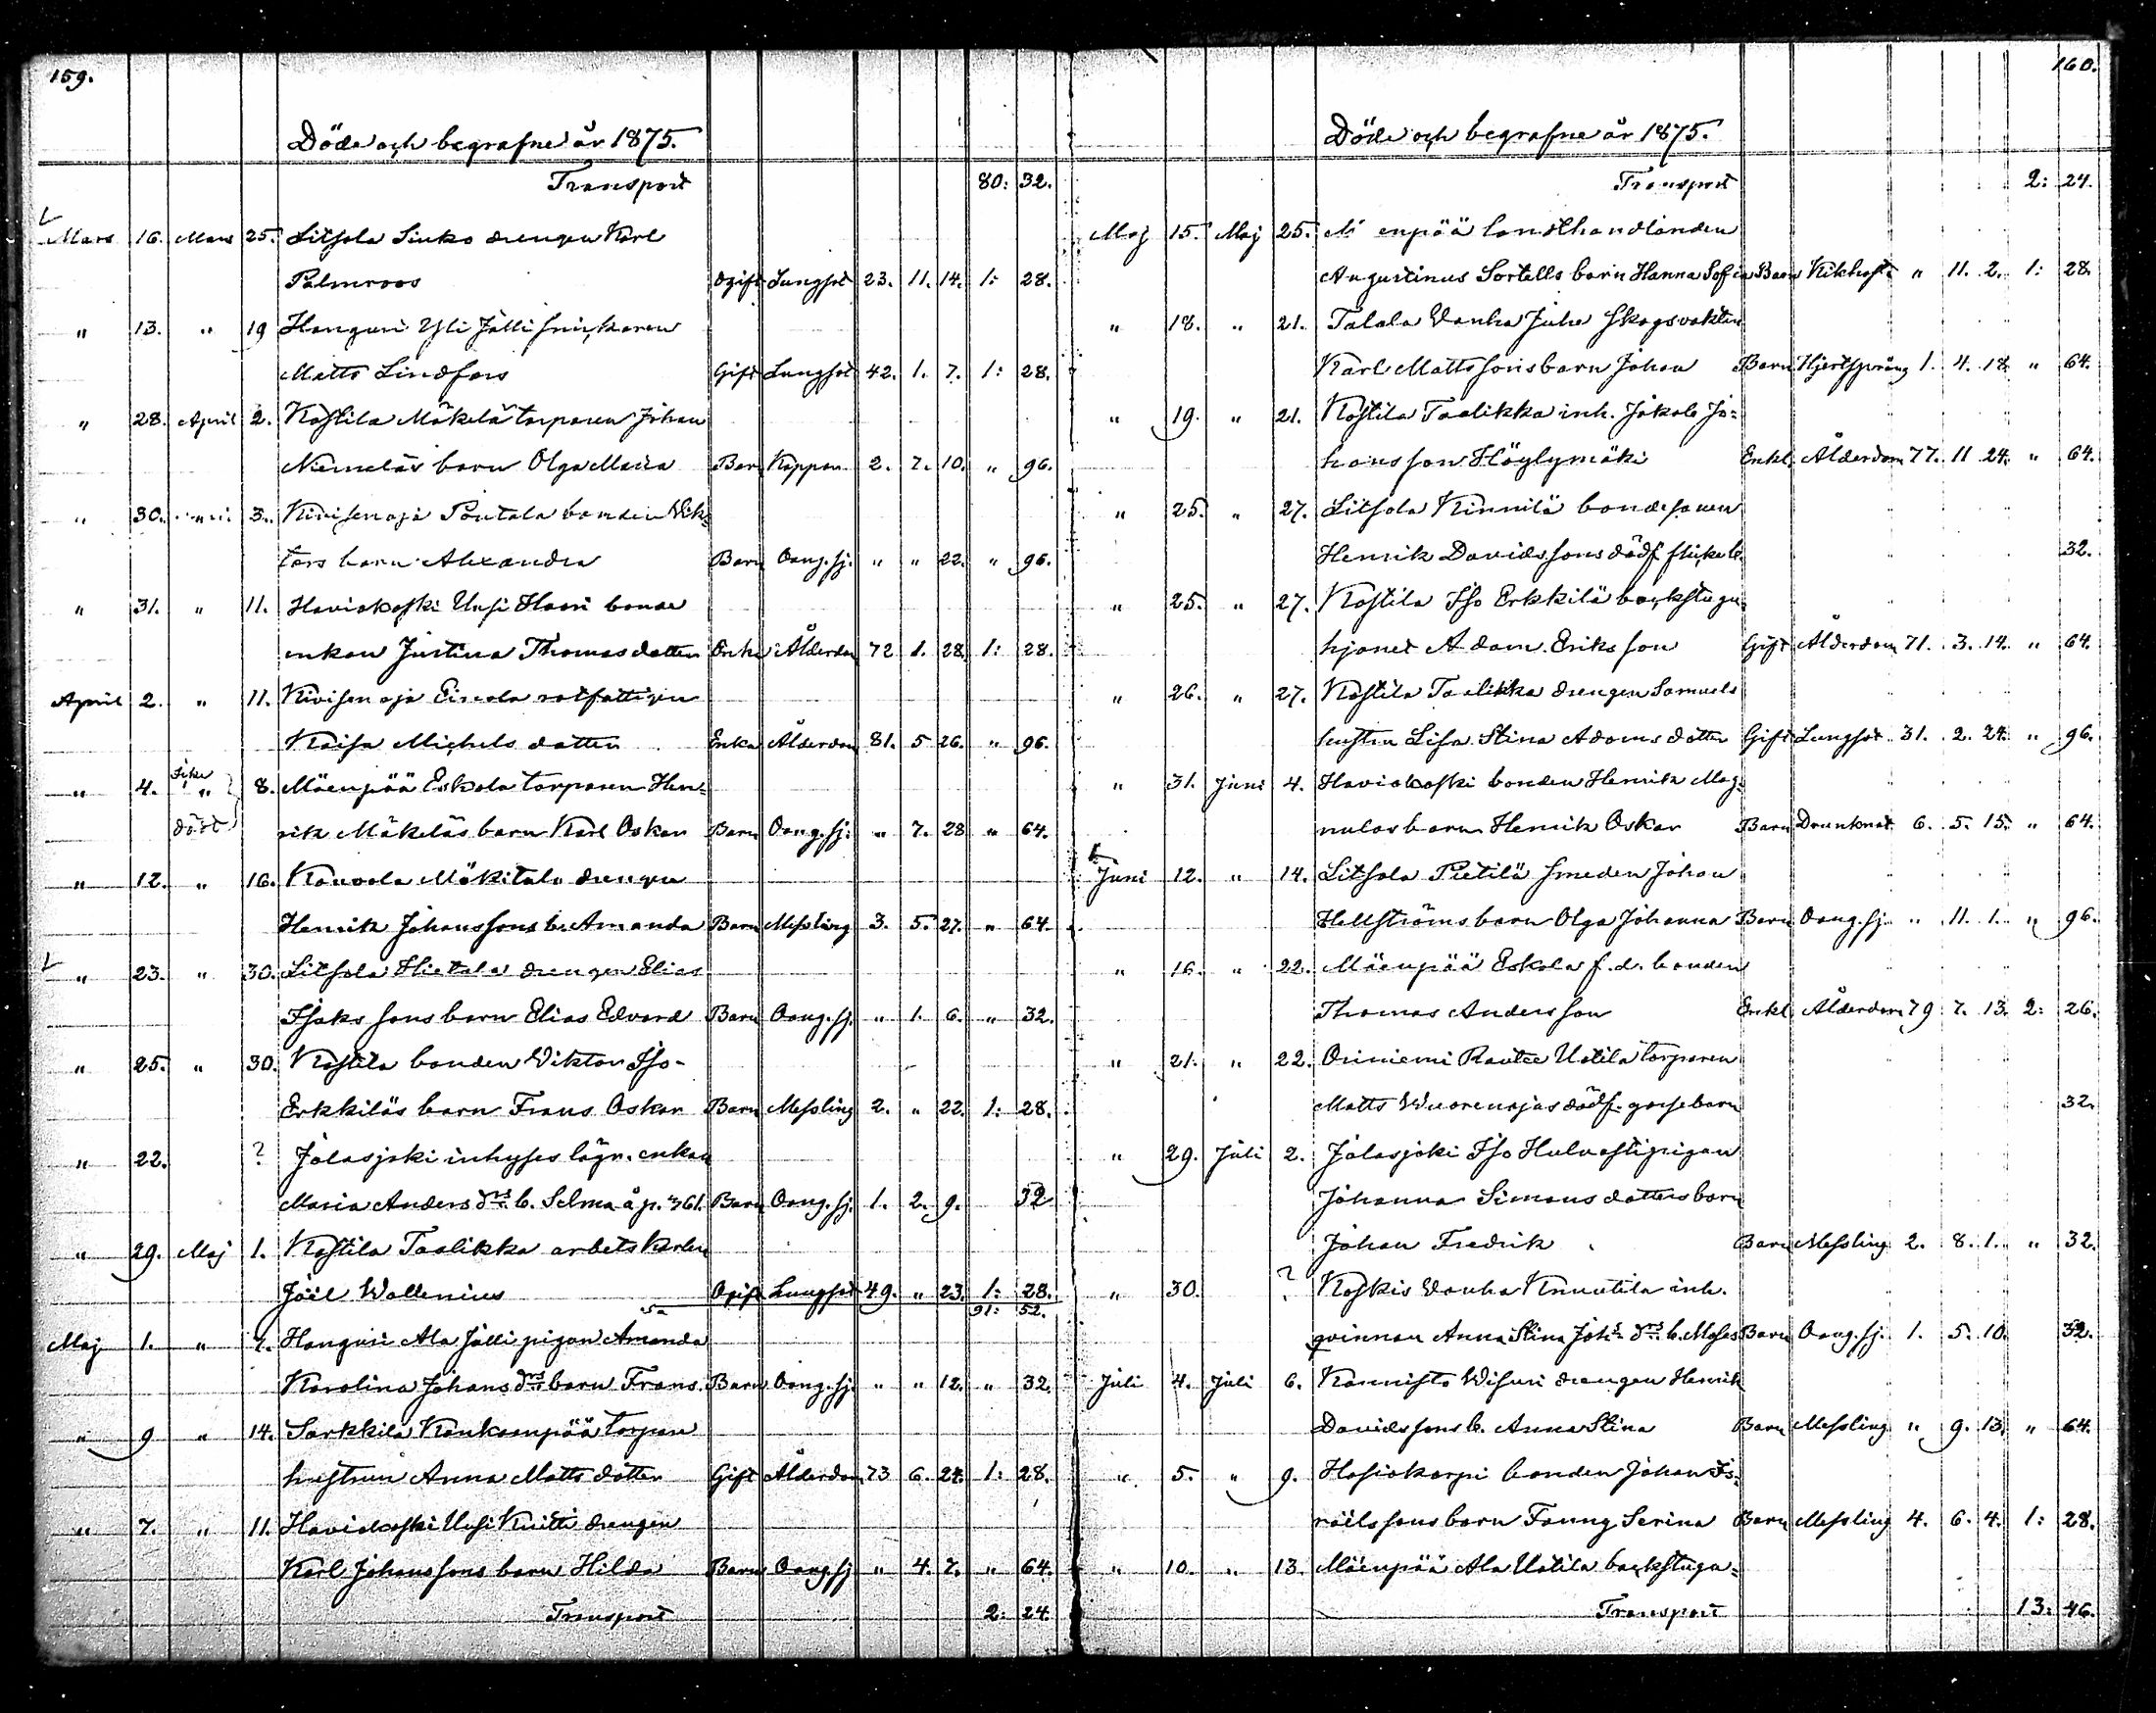 159.
Döde och begrafne år 1875.
Transport 80: 32.
Mars 16. Mars 25. Litsola Sinko drengen Karl
Palmroos Ogift Lungsot 23. 11. 14. 1: 28.
" 13. " 19 Honguri Yli Jälli snickaren
Matts Lindfors Gift Lungsot 42. 1. 7. 1: 28.
" 28. April 2. Kostila Mäkelä torparen Johan
Niemeläs barn Olga Maria Barn Koppor 2. 7. 10. " 96.
" 30. " 3. Kivisenoja Pentala bonden Vik-
tors barn Alexandra Barn Oang. sj. " " 22. " 96.
" 31. " 11. Haviokoski Uusi Haari bonde
enkan Justina Thomasdotter Enka Ålderdom 72 1. 28. 1: 28.
April 2. " 11. Kivisenoja Einola rotfattigen
Kaisa Michelsdotter Enka Ålderdom 81. 5 26. " 96.
" 4. " 8. Mäenpää Eskola torparen Hen-
död rik Mäkeläs barn Karl Oskar Barn Oang. sj. " 7. 28 " 64.
" 12. " 16. Kouvola Mäkitalo drengen
Henrik Johanssons b. Amanda Barn Messling 3. 5. 27. " 64.
" 23. " 30. Litsola Hietala drengen Elias
Isaks sons barn Elias Edvard Barn Oang. sj. " 1. 6. " 32.
" 25. " 30. Kostila bonden Viktor Iso-
Erkkiläs barn Frans Oskar Barn Messling 2. " 22. 1: 28.
" 22. ? Jalasjoki inhyses lägr. enkan
Maria Anders drs b. Selma å p. 361. Barn Oang. sj. 1. 2. 9. 32
" 29. Maj 1. Kostila Taalikka arbetskarlen
Joël Wallenius Ogift Lungsot 49. " 23. 1: 28.
91: 52.
Maj 1. " 7. Honguri Ala Jälli pigan Amanda
Karolina Johans drs barn Frans. Barn Oang. sj. " " 12. " 32.
" 9 " 14. Sarkkila Kankaanpää torpare
hustrun Anna Mattsdotter Gift Ålderdom 73 6. 24. 1: 28.
" 7. " 11. Haviokoski Uusi Knitti drengen
Karl Johanssons barn Hilda Barn Oang. sj " 4. 7. " 64.
Transport 2: 24.
160.
Döde och begrafne år 1875.
Transport 2: 24.
Maj 15. Maj 25. M enpää landthandlanden
Augustinus Sortells barn Hanna Sofia Barn Kikhosta " 11. 2. 1: 28.
" 18. " 21. Talala Vanha Juho skogsvakten
Karl Mattssons barn Johan Barn Hjertsprång 1. 4. 18. " 64.
" 19. " 21. Kostila Taalikka inh. Jakob Jo-
hansson Höylymäki Enkl. Ålderdom 77. 11 24. " 64.
" 25. " 27. Litsola Kinnilä bondesonen
Henrik Davidssons dödf. flicke b. 32.
" 25. " 27. Kostila Iso Erkkilä backstugu-
hjonet Adam Eriksson Gift Ålderdom 71. 3. 14. " 64.
" 26. " 27. Kostila Taalikka drengen Samuels
hustru Lisa Stina Adamsdotter Gift Lungsot 31. 2. 24. " 96.
" 31. Juni 4. Haviokoski bonden Henrik Mag-
nulas barn Henrik Oskar Barn Drunknat 6. 5. 15. " 64.
Juni 12. " 14. Litsola Pietilä smeden Johan
Hellströms barn Olga Johanna Barn Oang. sj. " 11. 1. " 96.
" 16. " 22. Mäenpää Eskola f. d. bonden
Thomas Andersson Enkl. Ålderdom 79 7. 13. 2: 26.
" 21. " 22. Oriniemi Rautee Uotila torparen
Matts Wuorenojas dödf. gossebarn 32.
" 29. Juli 2. Jalasjoki Iso Hulvesti pigan
Johanna Simonsdotters barn
Johan Fredrik Barn Messling 2. 8. 1. " 32.
" 30. ? Koskis Vanha Knuutila inh.
qvinnan Anna Stina Johs drs b. Moses Barn Oang. sj. 1. 5. 10. 32.
Juli 4. Juli 6. Kannisto Wisuri drengen Henrik
Davidssons b. Anna Stina Barn Messling " 9. 13. " 64.
" 5. " 9. Hosiokorpi bonden Johan Is-
raëls sons barn Fanny Serina Barn Messling 4. 6. 4. 1: 28.
" 10. " 13. Mäenpää Ala Uotila backstugu-
Transport 13: 46.